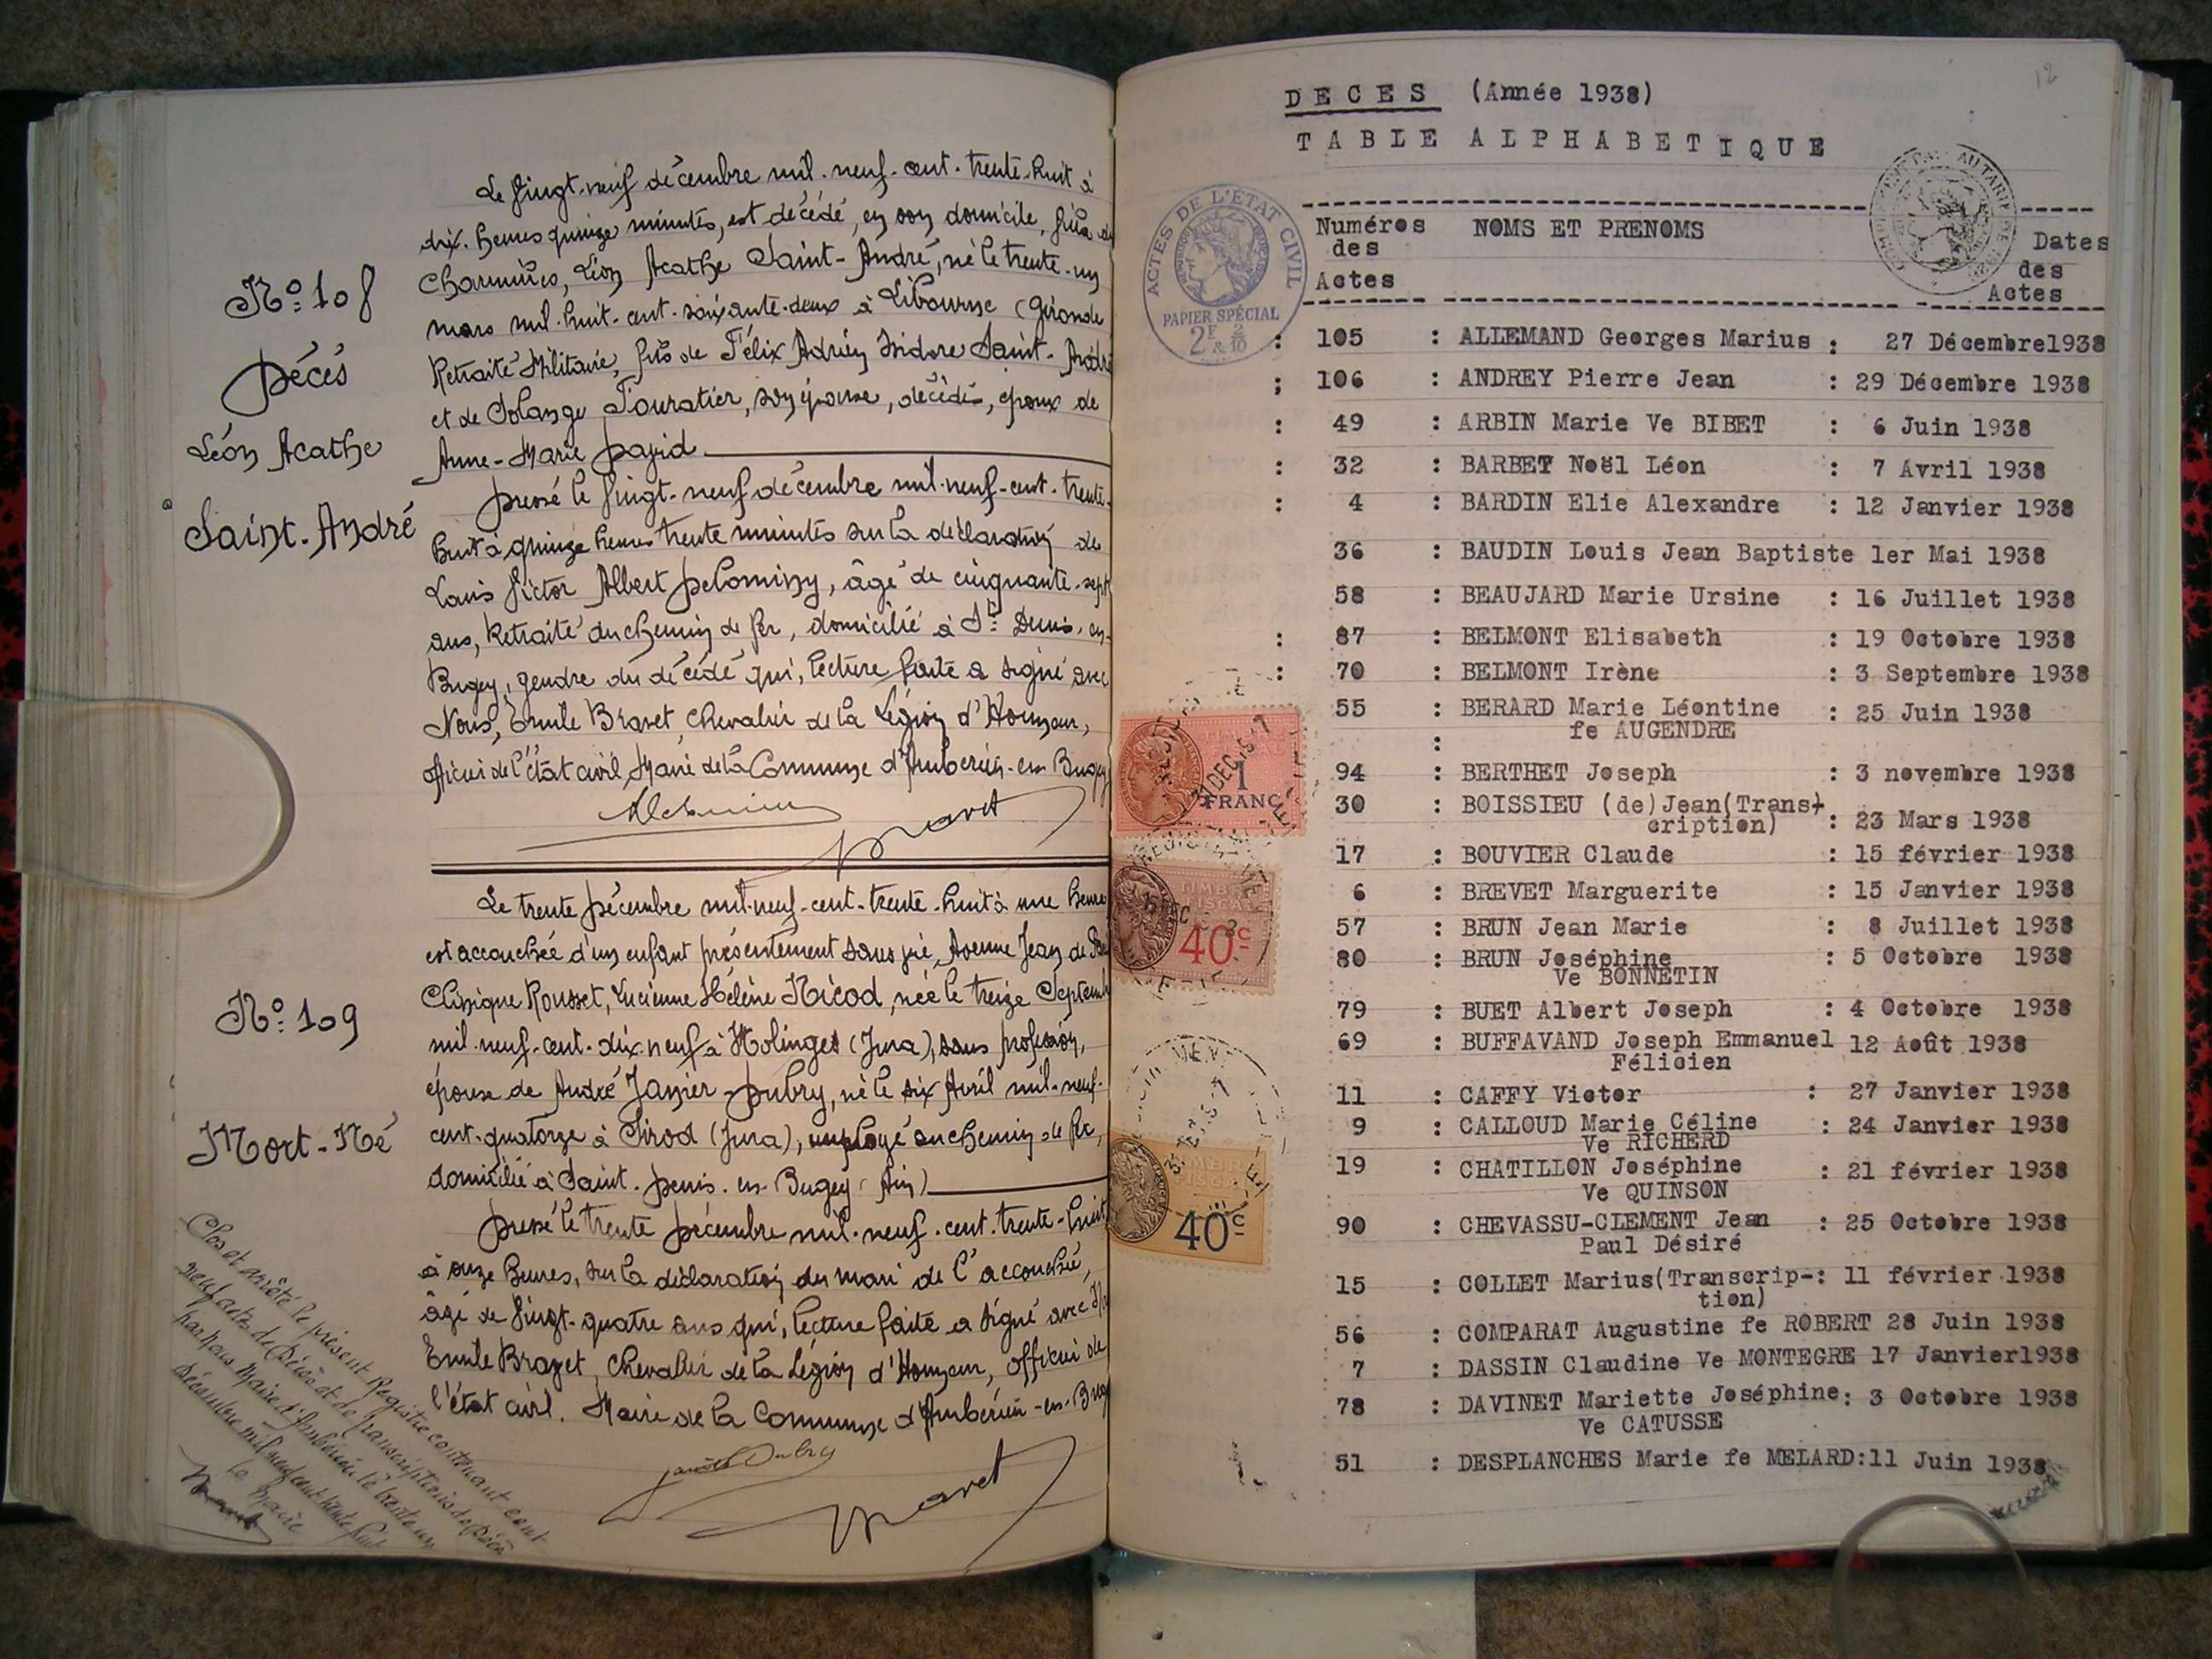 Le vingt-neuf décembre mil-neuf-cent-trente-huit à
dix heures quinze minutes, est décédé, en son domicile,
Charmines, Léon Acathe Saint-André, né le trente-un
mars mil-huit-cent-soixante-deux à Libourne (Gironde
Retraité Militaire, fils de Félix Adrien Isidore Saint-André
et de Solange Touratier, son épouse, décédés, époux de
Anne-Marie David
Dressé le vingt-neuf décembre mil-neuf-cent-trente-
huit à quinze heures trente minutes sur la déclaration de
Louis Victor Albert Delominy, âgé de cinquante-sept
ans, Retraité du chemin de fer, domicilié à St Denis-en-
Bugey, gendre du décédé qui, lecture faite a signé avec
Nous, Emile Bravet, Chevalier de la Légion d'Honneur,
officier de l'état civil, Maire de la Commune d'Ambérieu-en-Bugey
Bravet
N° 108
Décès
Léon Acathe
Saint-André
Le trente Décembre mil-neuf-cent-trente-huit à une heure
est accouchée d'un enfant présentement sans vie, Avenue Jean de
Clinique Rousset, Lucienne Hélène Nicod, née le treize Septembre
mil-neuf-cent-dix-neuf à Molinges (Jura), sans profession,
épouse de André Janier-Dubry, né le six Avril mil-neuf-
cent-quatorze à Sirod (Jura), employé au chemin de fer,
domicilié à Saint-Denis-en-Bugey (Ain)
Dressé le trente Décembre mil-neuf-cent-trente-huit
à onze heures, sur la déclaration du mari de l'accouchée,
âgé de vingt-quatre ans qui, lecture faite a signé avec
Emile Bravet, Chevalier de la Légion d'Honneur, officier de
l'état civil. Maire de la Commune d'Ambérieu-en-Bug
Janier Dubry
Bravet
N° 109
Mort-Né
Clos et arrêté le présent Registre contenant cent
neuf actes de Décès et de transcriptions de Décès
par nous Maire d'Ambérieu le trente un
Décembre mil neuf cent trente huit
le Maire
12
DECES (Année 1938)
TABLE ALPHABETIQUE
ACTES DE L'ÉTAT CIVIL
PAPIER SPÉCIAL
2F & 2/10
Numéros des Actes NOMS ET PRENOMS Dates des Actes
: 105 : ALLEMAND Georges Marius : 27 Décembre1938
; 106 : ANDREY Pierre Jean : 29 Décembre 1938
: 49 : ARBIN Marie Ve BIBET : 6 Juin 1938
: 32 : BARBET Noël Léon : 7 Avril 1938
: 4 : BARDIN Elie Alexandre : 12 Janvier 1938
36 : BAUDIN Louis Jean Baptiste 1er Mai 1938
58 : BEAUJARD Marie Ursine : 16 Juillet 1938
: 87 : BELMONT Elisabeth : 19 Octobre 1938
: 70 : BELMONT Irène : 3 Septembre 1938
55 : BERARD Marie Léontine : 25 Juin 1938
fe AUGENDRE
:
94 : BERTHET Joseph : 3 novembre 1938
30 : BOISSIEU (de)Jean(Trans-
cription) : 23 Mars 1938
17 : BOUVIER Claude : 15 février 1938
6 : BREVET Marguerite : 15 Janvier 1938
57 : BRUN Jean Marie : 8 Juillet 1938
80 : BRUN Joséphine : 5 Octobre 1938
Ve BONNETIN
79 : BUET Albert Joseph : 4 Octobre 1938
69 : BUFFAVAND Joseph Emmanuel 12 Août 1938
Félicien
11 : CAFFY Victor : 27 Janvier 1938
9 : CALLOUD Marie Céline : 24 Janvier 1938
Ve RICHERD
19 : CHATILLON Joséphine : 21 février 1938
Ve QUINSON
90 : CHEVASSU-CLEMENT Jean : 25 Octobre 1938
Paul Désiré
15 : COLLET Marius(Transcrip-: 11 février 1938
tion)
56 : COMPARAT Augustine fe ROBERT 28 Juin 1938
7 : DASSIN Claudine Ve MONTEGRE 17 Janvier1938
78 : DAVINET Mariette Joséphine: 3 Octobre 1938
Ve CATUSSE
51 : DESPLANCHES Marie fe MELARD:11 Juin 1938
1 FRANC
TIMBRE FISCAL
40c
TIMBRE FISCAL
40c